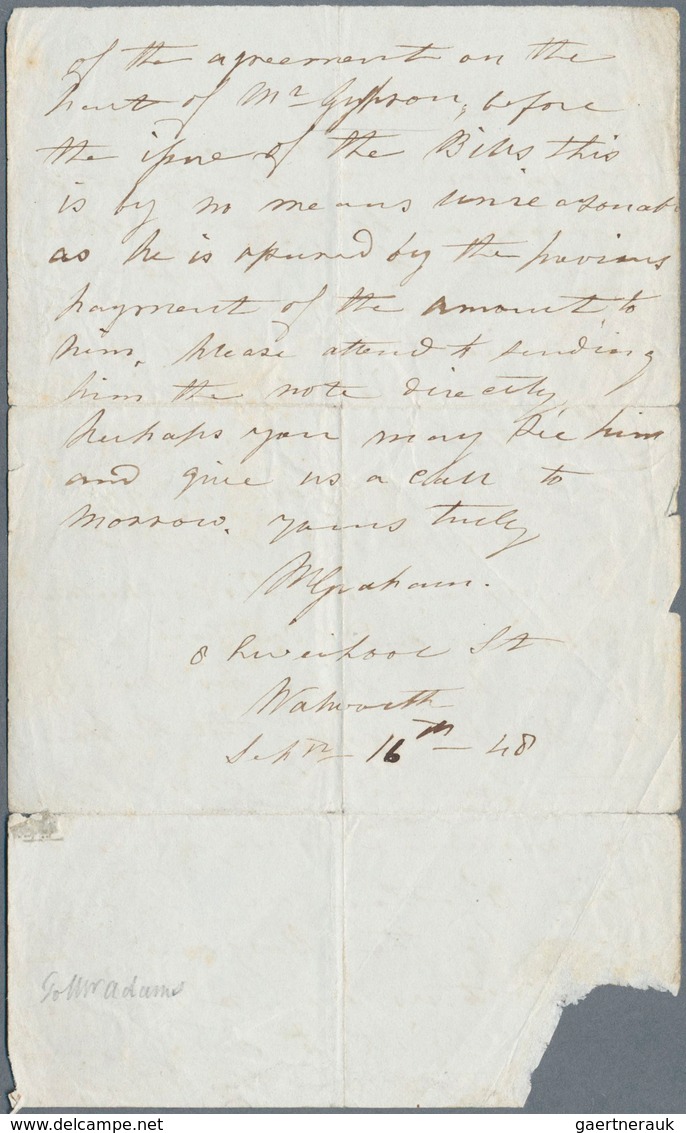 of the agreement on the
part of Mr Gyhson, before
the issue of the Bills this
is by no means unreasonabl
as he is assured by the previous
payment of the amount to
him, please attend to sending
him the note directly
Perhaps you may see him
and give us a call to
morrow. yours truly
MGraham.
8 Liverpool St
Walworth
Septr 16th - 48
To Mr adams
gaertnerauk